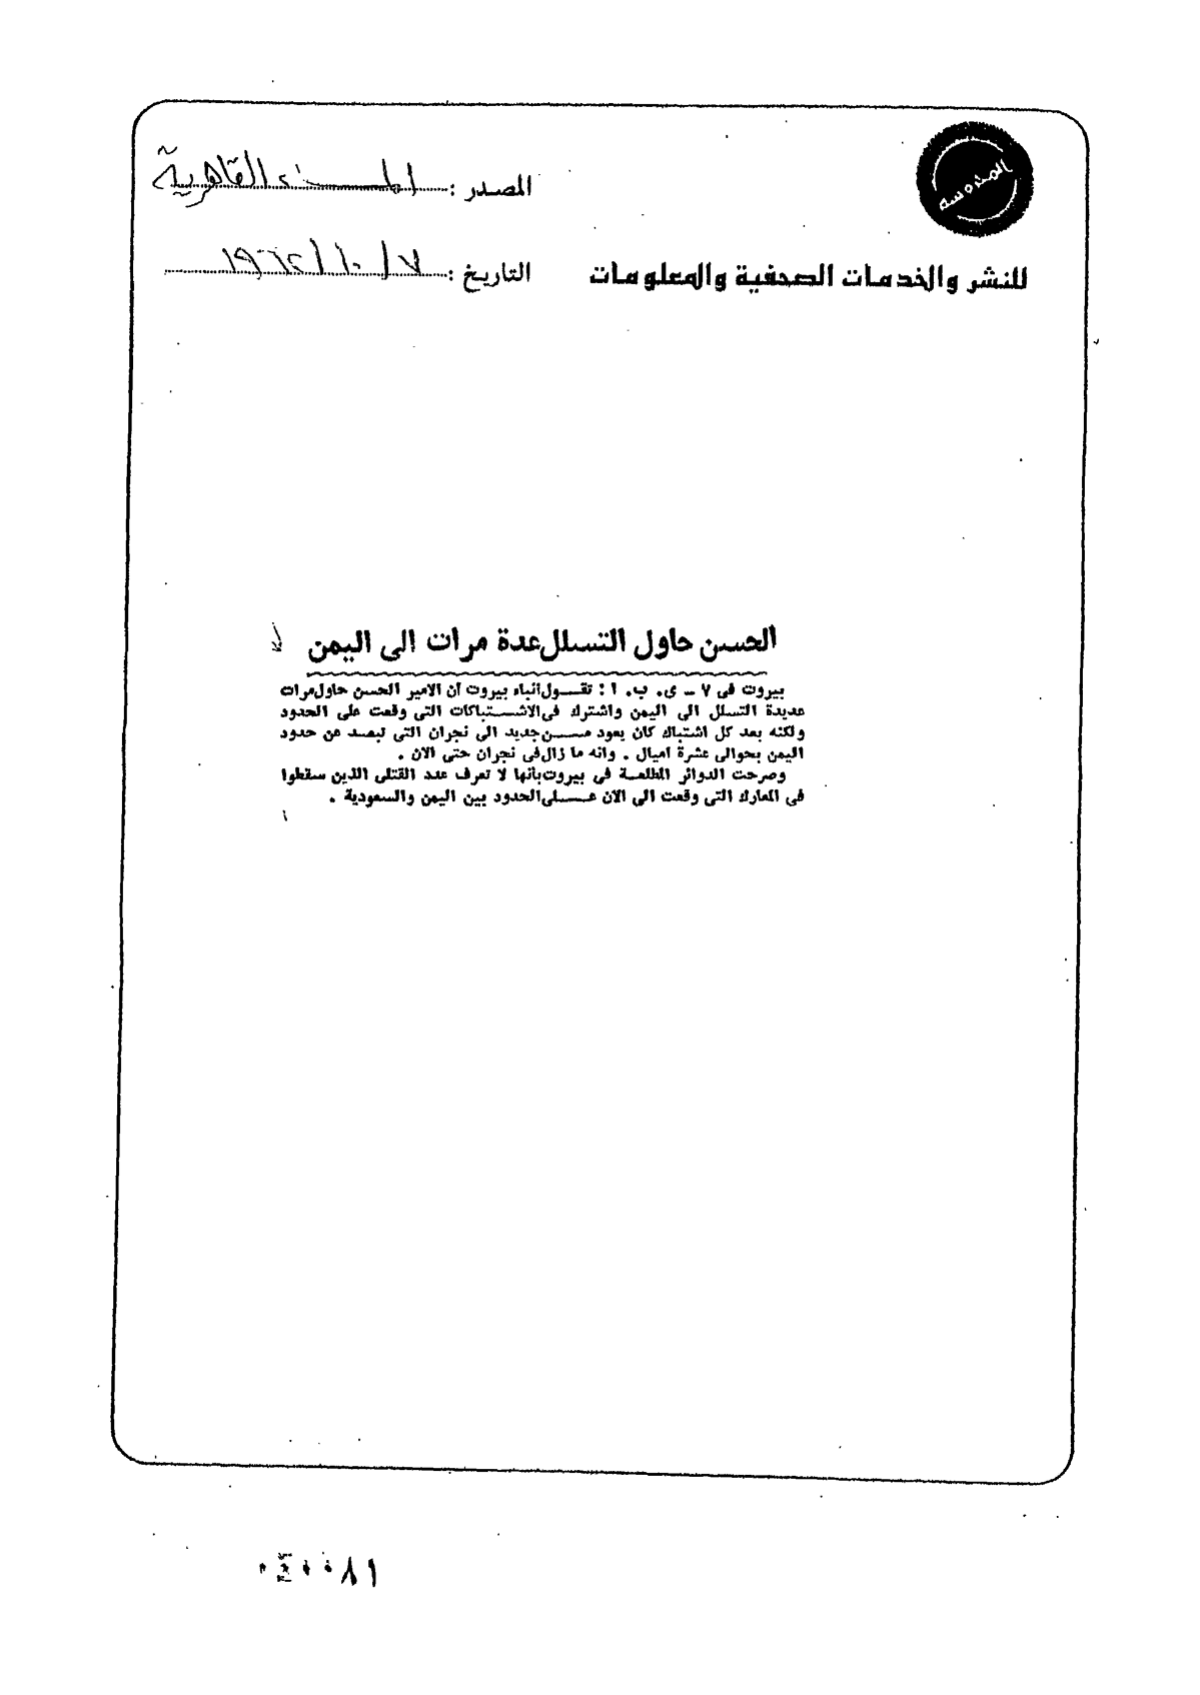 المحروسة
للنشر والخدمات الصحفية والمعلومات
المصدر : المساء القاهرية
التاريخ : ٧ / ١٠ / ١٩٦٢
الحسن حاول التسلل عدة مرات الى اليمن
بيروت فى ٧ - ى. ب. ا : تقول انباء بيروت أن الامير الحسن حاول مرات
عديدة التسلل الى اليمن واشترك فى الاشتباكات التى وقعت على الحدود
ولكنه بعد كل اشتباك كان يعود من جديد الى نجران التى تبعد عن حدود
اليمن بحوالى عشرة اميال . وانه ما زال فى نجران حتى الان .
وصرحت الدوائر المطلعة فى بيروت بأنها لا تعرف عدد القتلى الذين سقطوا
فى المعارك التى وقعت الى الان على الحدود بين اليمن والسعودية .